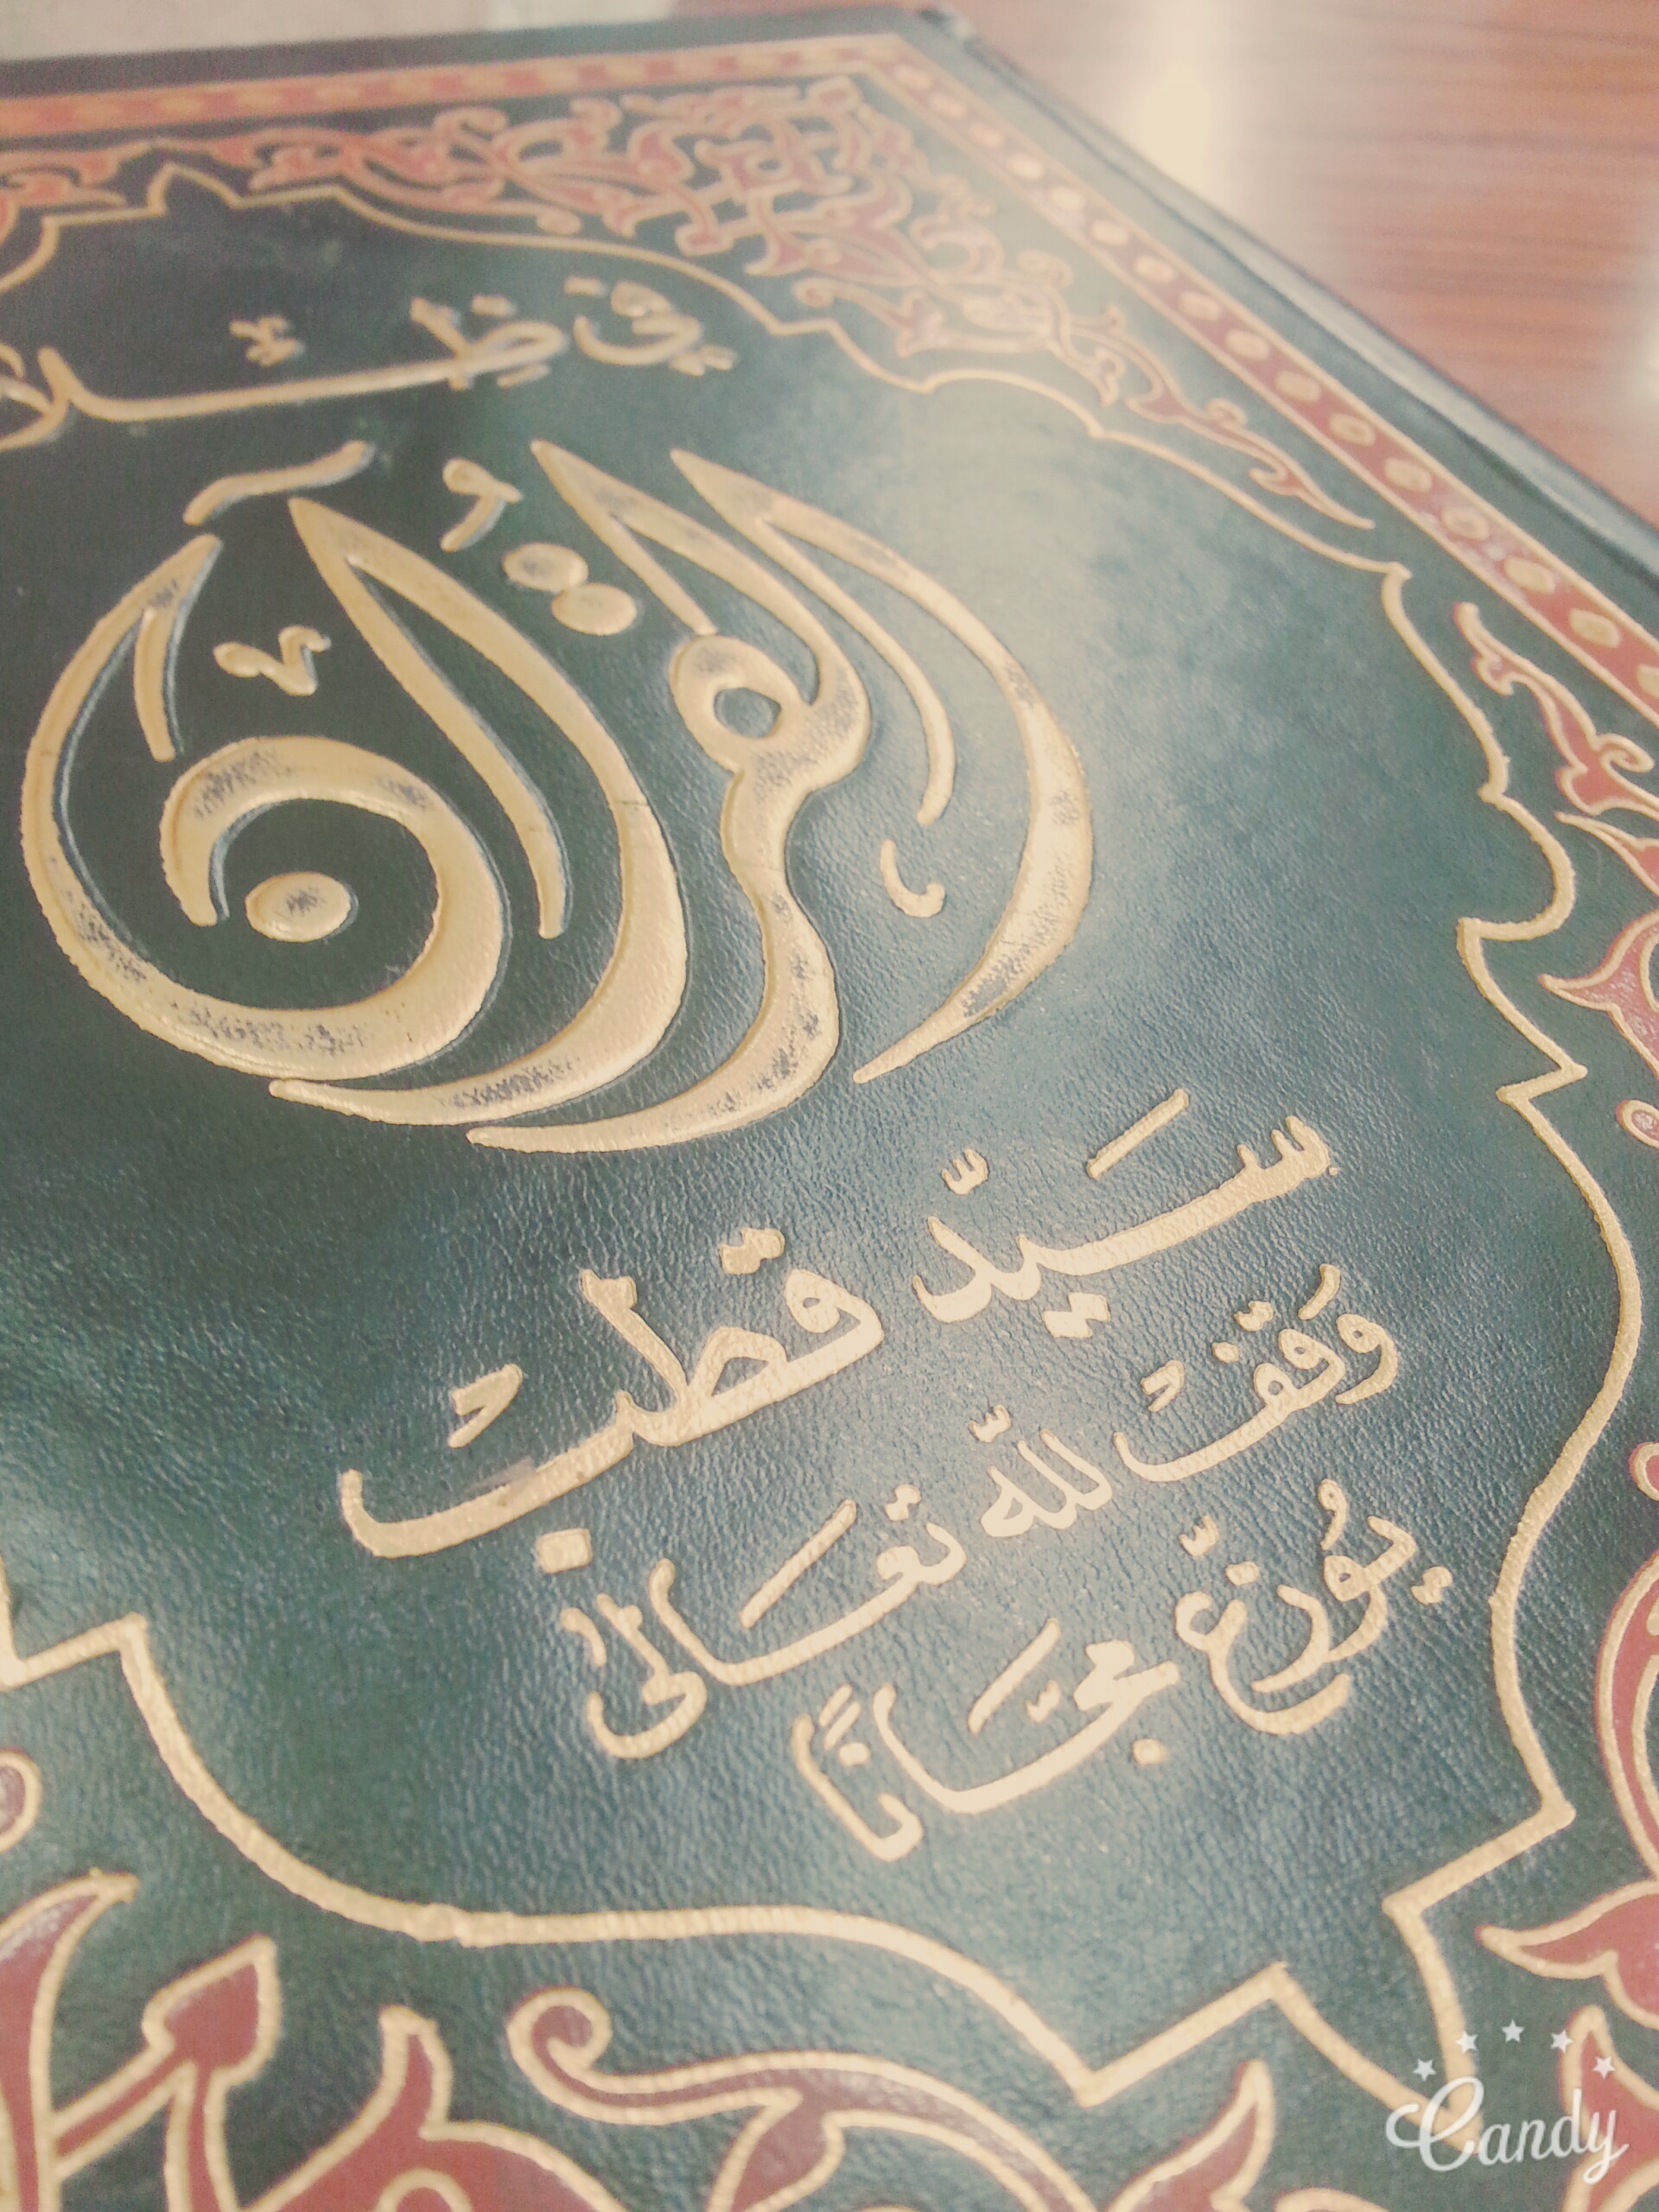 في ظلال
القرآن
سَيّد قطبْ
وَقفْ للّه تعَالىٰ
يُوزّع مجَّانًا
Candy